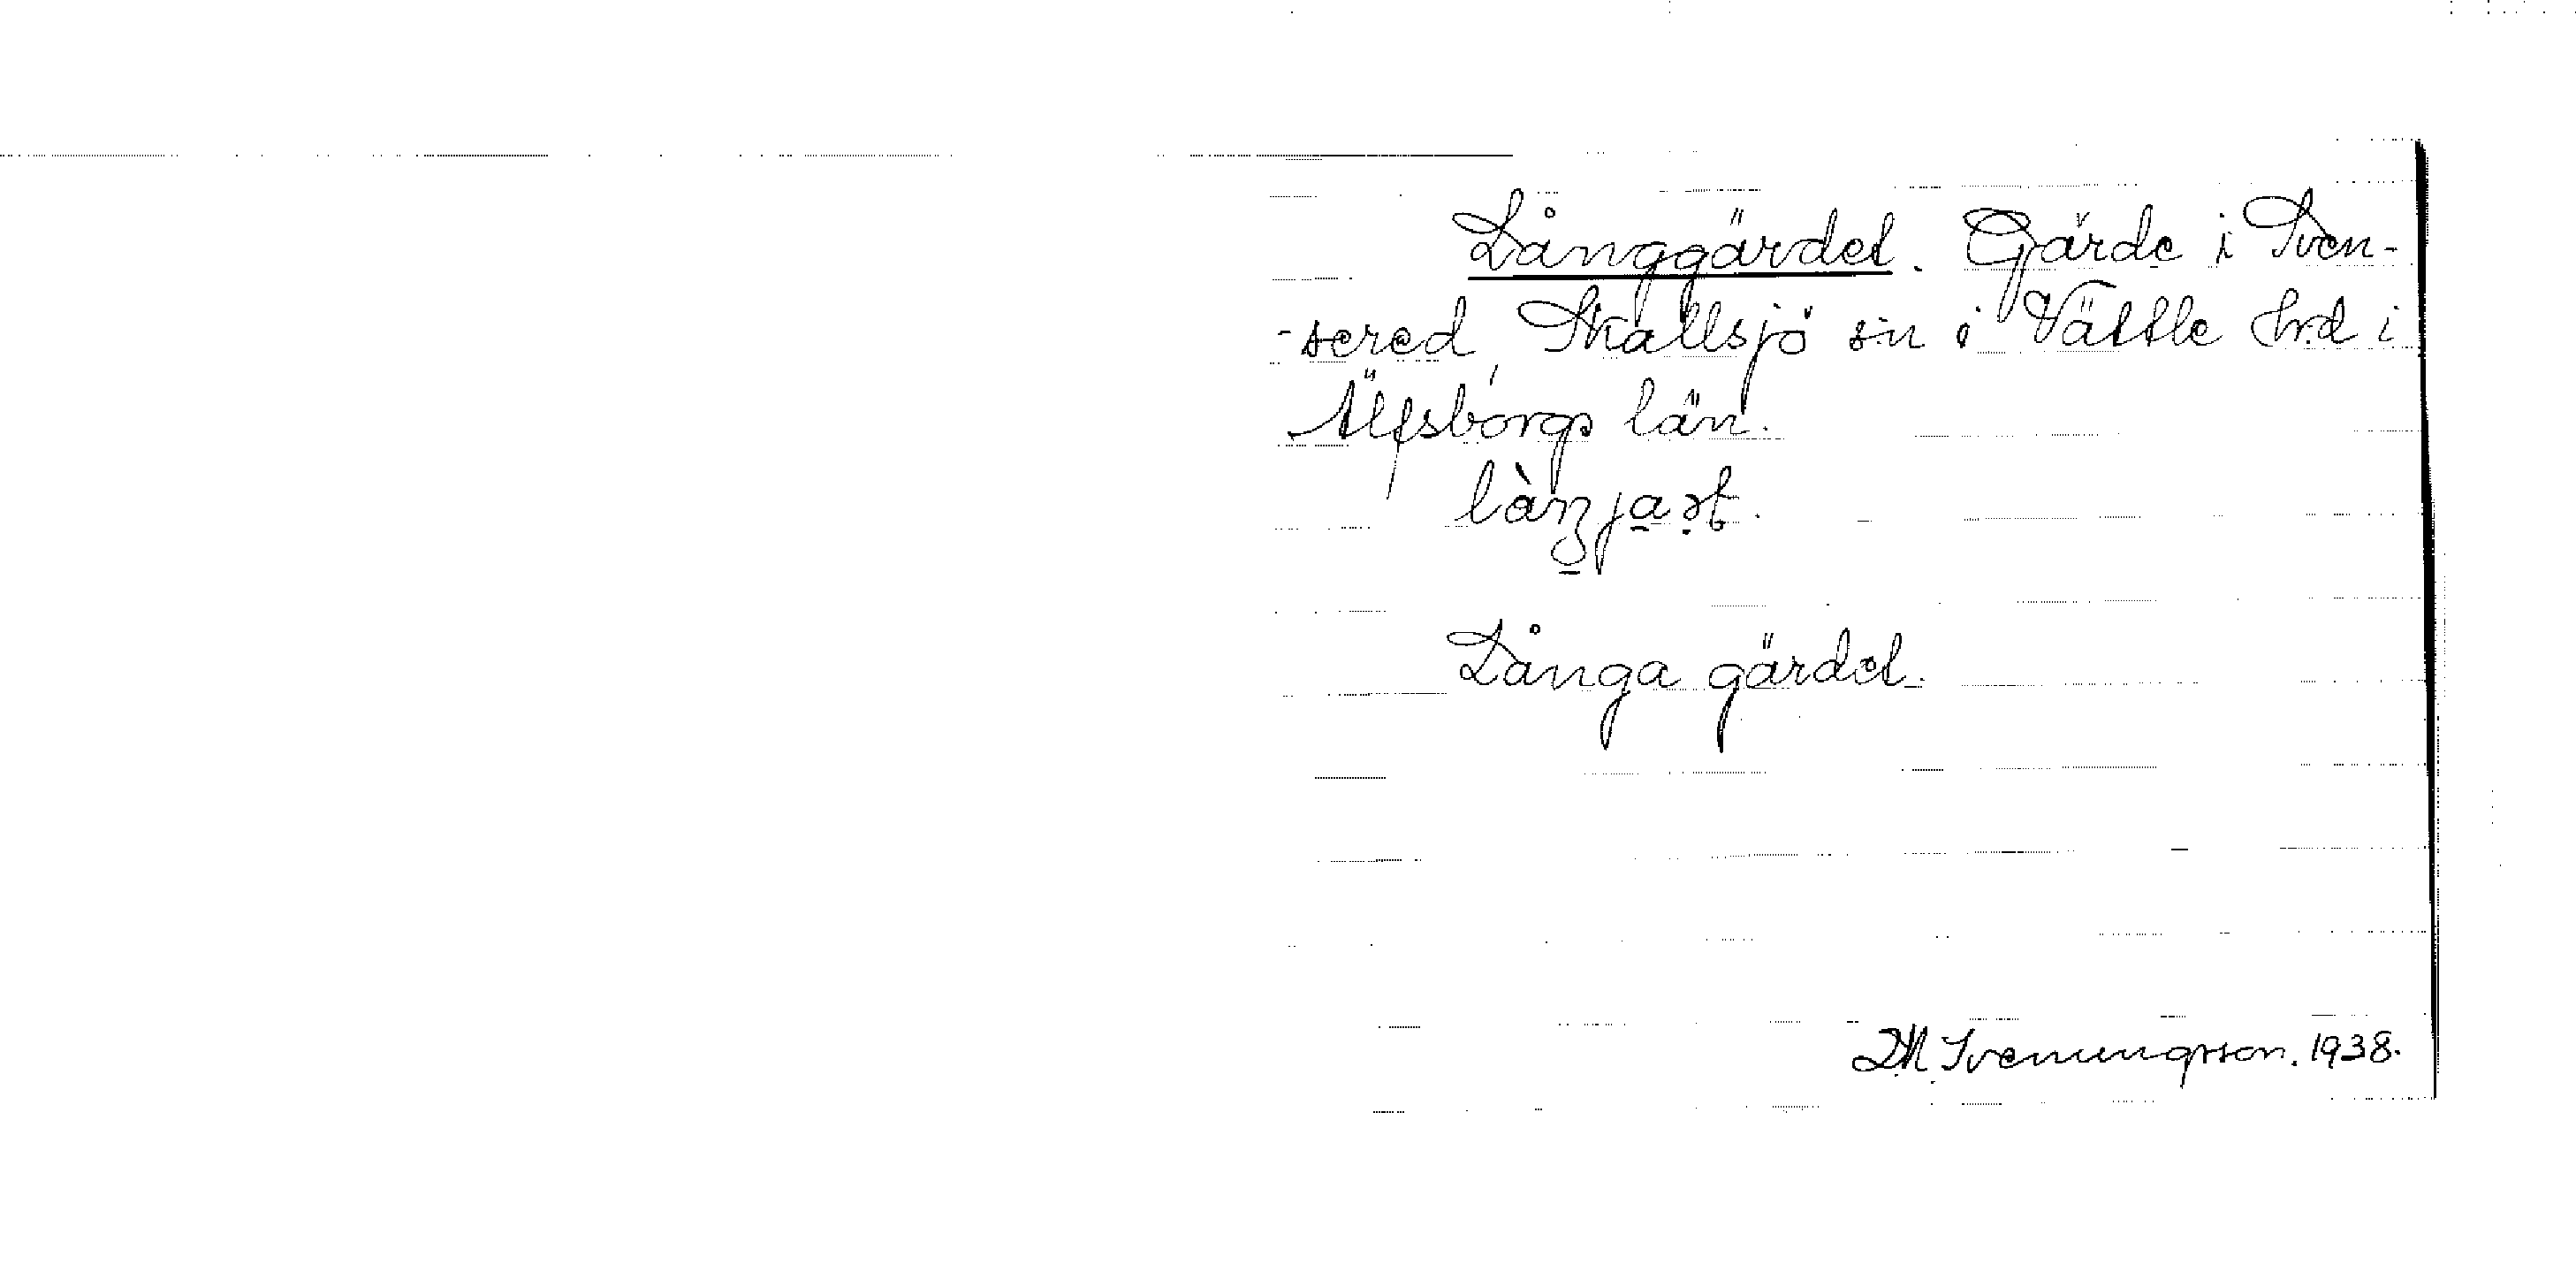 Långgärdet. Gärde i Sven-
-sered, Skallsjö sn i Vättle hrd i
Älfsborgs län.
Långa gärdet.
Svenungsson. 1938.